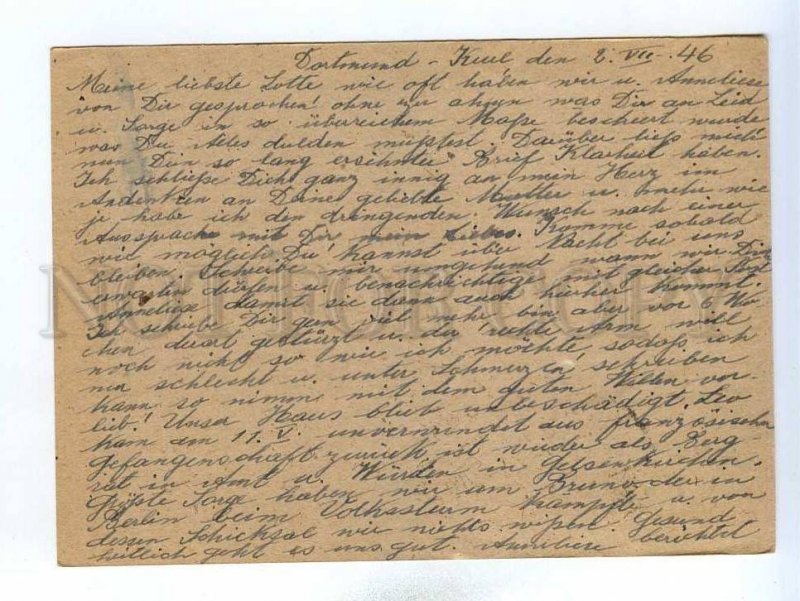 Dortmund - Kurl den 8. VII. 46
Meine liebste Lotte wie oft haben wir u. Anneliese
von Dir gesprochen! ohne zu ahnen was Dir an Leid
u. Sorge in so überreichem Maße beschert wurde
was Du Alles dulden mußtest. Darüber ließ mich
nun Dein so lang ersehnter Brief Klarheit haben.
Ich schließe Dich ganz innig an mein Herz im
Andenken an Deine geliebte Mutter u. mehr wie
je habe ich den dringenden Wunsch nach einer
Aussprache mit Dir mein Liebes. Komme sobald
wie möglich Du kannst über Nacht bei uns
bleiben. Schreibe mir umgehend wann wir Dich
erwarten dürfen u. benachrichtige mit gleicher Post
Anneliese damit sie dann auch hierher kommt.
Ich schreibe Dir gern viel mehr bin aber vor 6 Wo
chen derart gestürzt u. der rechte Arm will
noch nicht so wie ich möchte sodass ich
nur schlecht u. unter Schmerzen schreiben
kann so nimm mit dem guten Willen vor-
lieb! Unser Haus blieb unbeschädigt. Leo
kam am 17. V. unverwundet aus französischen
gefangenschaft zurück, ist wieder als Berg-
rat in Amt u. Würden in Gelsenkirchen.
Größte Sorge haben wir um Bruno, der in
Berlin beim Volkssturm kämpfte u. von
dessen Schicksal wir nichts wissen. Gesund
heitlich geht es uns gut. Anneliese
NOT FOR COPY